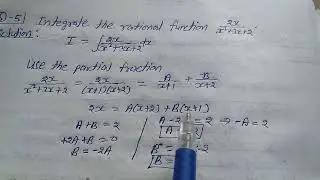 Q-5) Integrate the rational function 2x/x²+3x+2.
Solution:
I = ∫ 2x/x²+3x+2 dx
Use the partial fraction
2x/x²+3x+2 = 2x/(x+1)(x+2) = A/x+1 + B/x+2
2x = A(x+2) + B(x+1)
A+B = 2
A-2 = 2 ⇒ -A = 2
+2A+B = 0
B = -2A